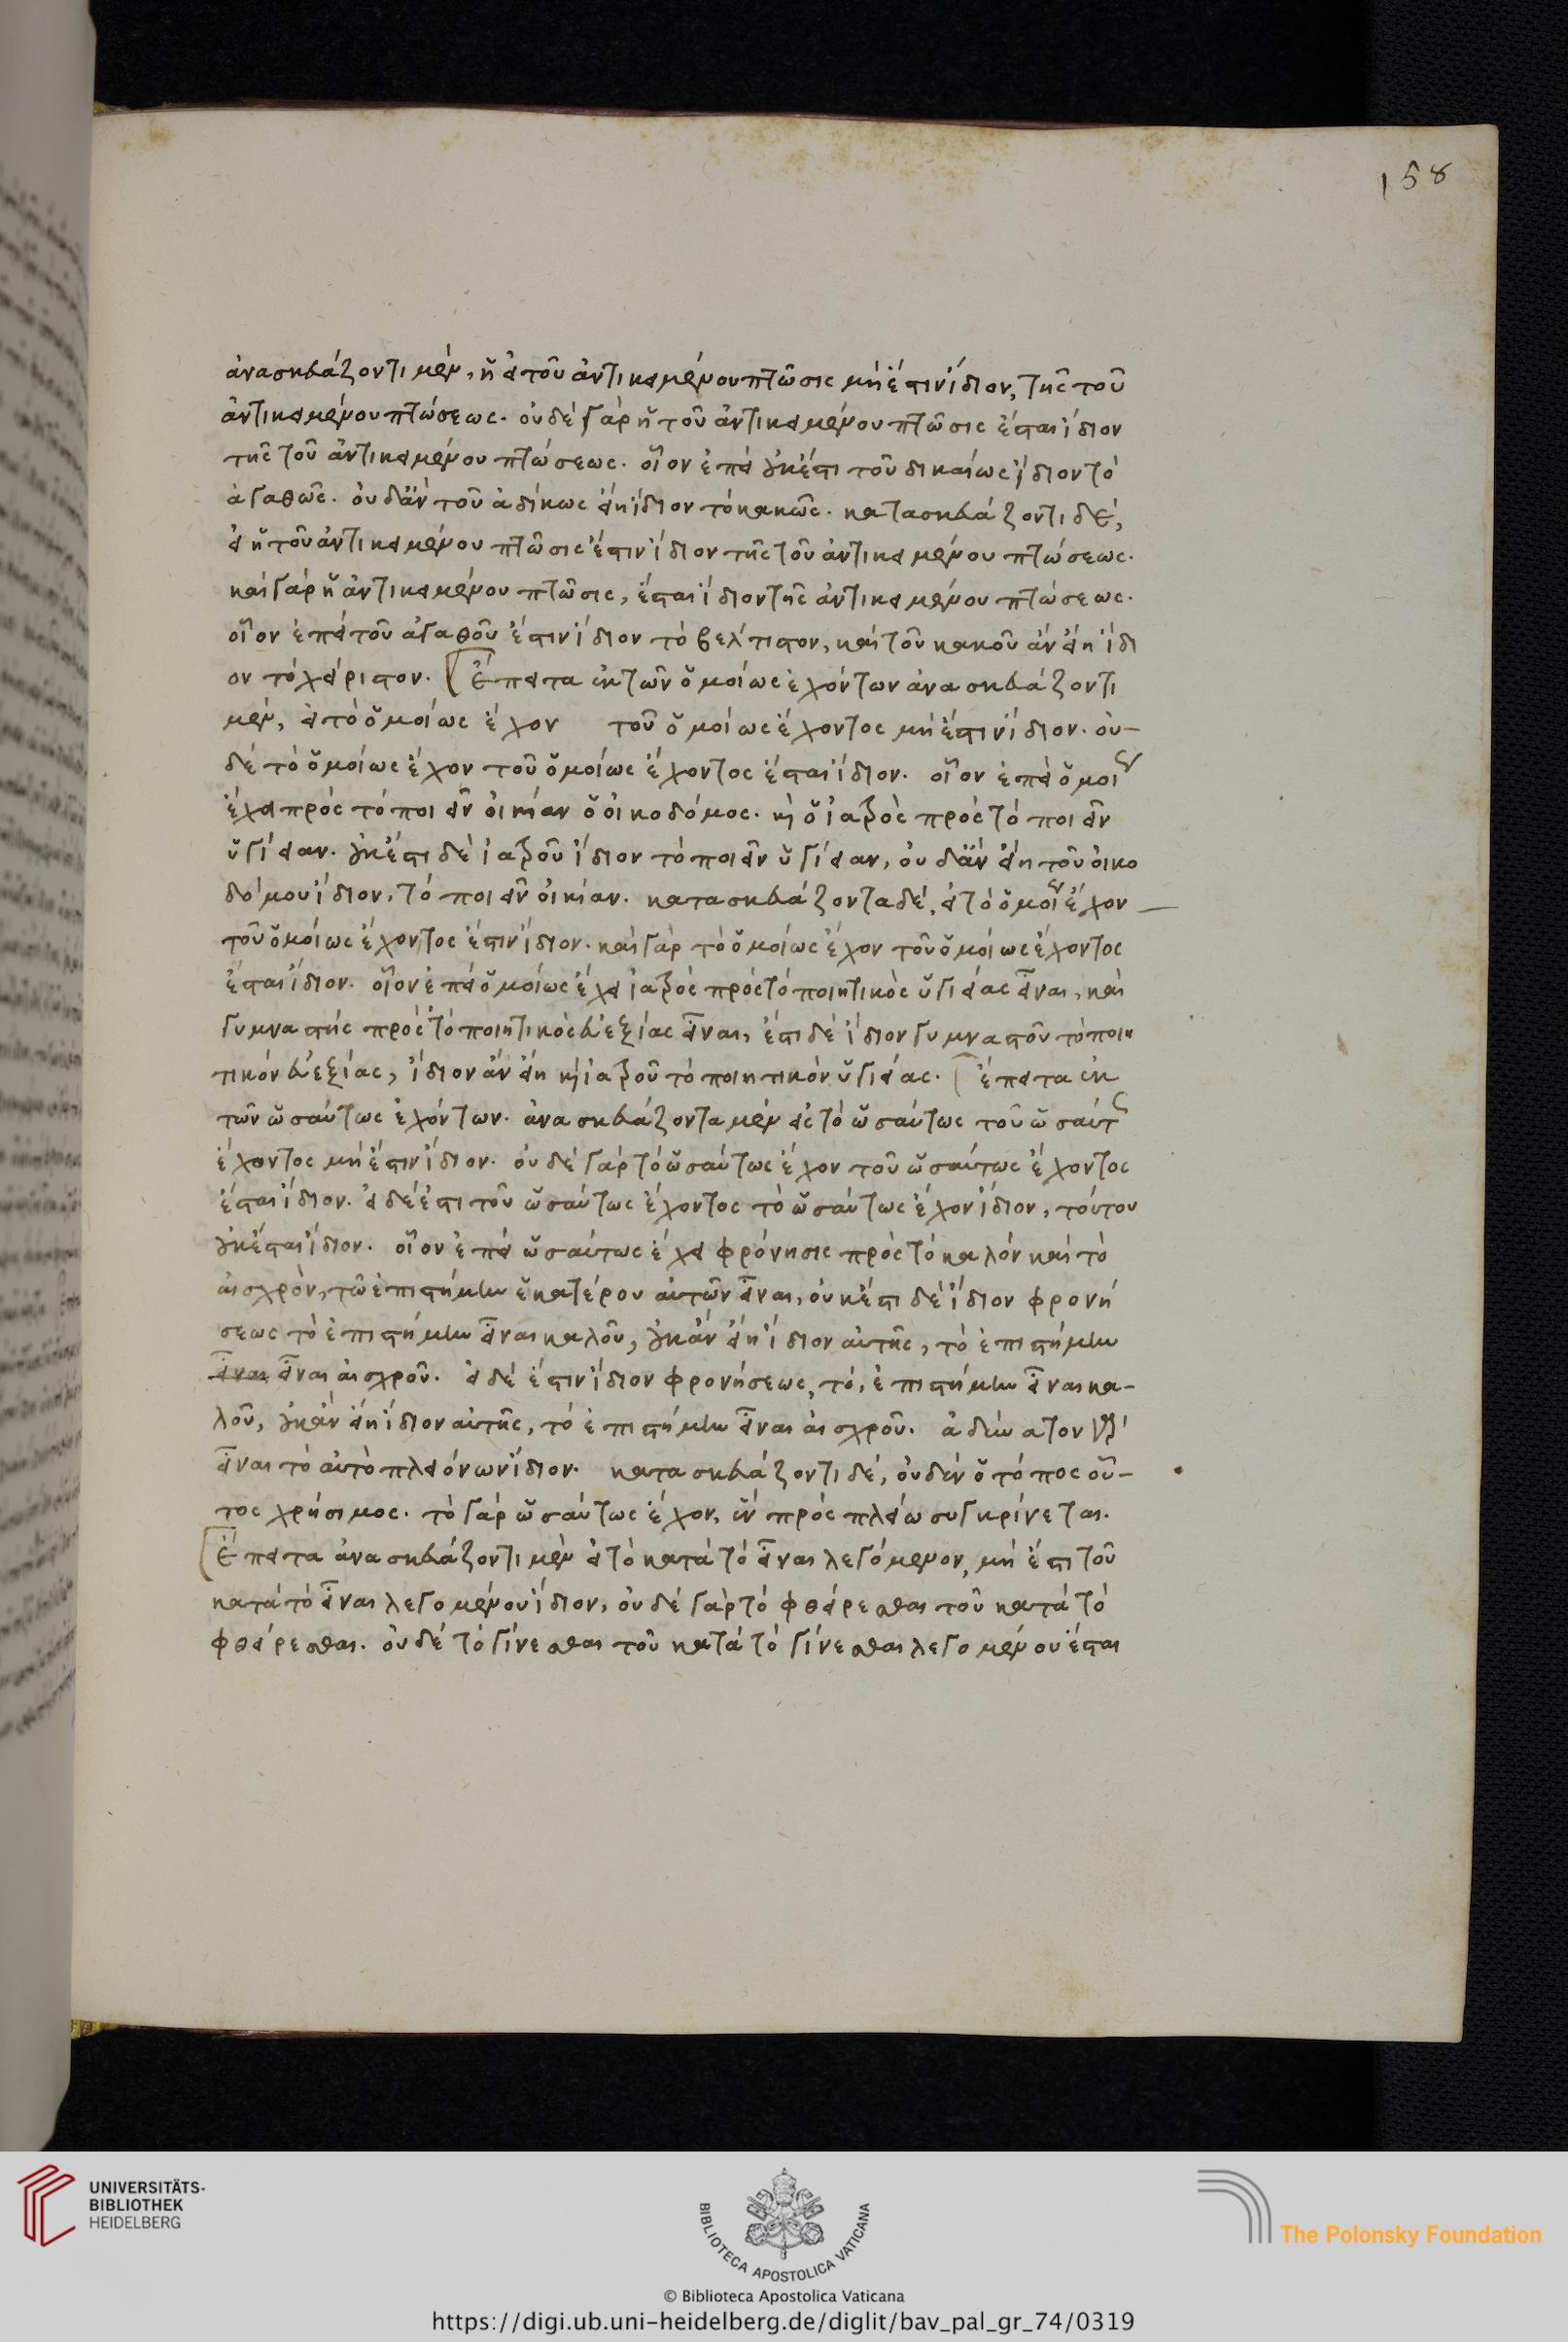 158
ἀνασκευάζοντι μὲν, ἡ εἰ τοῦ ἀντικειμένου πτῶσις μὴ ἔστιν ἴδιον, τῆς τοῦ
ἀντικειμένου πτώσεως. οὐδὲ γὰρ ἡ τοῦ ἀντικειμένου πτῶσις ἔσται ἴδιον
τῆς τοῦ ἀντικειμένου πτώσεως. οἷον ἐπεὶ οὐκ ἔστι τοῦ δικαίως ἴδιον τὸ
ἀγαθῶς. οὐδ' ἂν τοῦ ἀδίκως εἴη ἴδιον τὸ κακῶς. κατασκευάζοντι δὲ,
εἰ ἡ τοῦ ἀντικειμένου πτῶσις ἔστιν ἴδιον τῆς τοῦ ἀντικειμένου πτώσεως.
καὶ γὰρ ἡ ἀντικειμένου πτῶσις, ἔσται ἴδιον τῆς ἀντικειμένου πτώσεως.
οἷον ἐπεὶ τοῦ ἀγαθοῦ ἔστιν ἴδιον τὸ βέλτιστον, καὶ τοῦ κακοῦ ἂν εἴη ἴδι
ον τὸ χείριστον. Ἔπειτα ἐκ τῶν ὁμοίως ἐχόντων ἀνασκευάζοντι
μὲν, εἰ τὸ ὁμοίως ἔχον τοῦ ὁμοίως ἔχοντος μὴ ἔστιν ἴδιον. οὐ-
δὲ τὸ ὁμοίως ἔχον τοῦ ὁμοίως ἔχοντος ἔσται ἴδιον. οἷον ἐπεὶ ὁμοί
ἔχει πρὸς τὸ ποιεῖν οἰκίαν ὁ οἰκοδόμος. κὶ ὁ ἰατρὸς πρὸς τὸ ποιεῖν
ὑγίειαν. οὐκ ἔστι δὲ ἰατροῦ ἴδιον τὸ ποιεῖν ὑγίειαν, οὐδ' ἂν εἴη τοῦ οἰκο
δόμου ἴδιον, τὸ ποιεῖν οἰκίαν. κατασκευάζοντα δὲ, εἰ τὸ ὁμοί ἔχον
τοῦ ὁμοίως ἔχοντος ἔστιν ἴδιον. καὶ γὰρ τὸ ὁμοίως ἔχον τοῦ ὁμοίως ἔχοντος
ἔσται ἴδιον. οἷον ἐπεὶ ὁμοίως ἔχει ἰατρὸς πρὸς τὸ ποιητικὸς ὑγιείας εἶναι, καὶ
γυμναστὴς πρὸς τὸ ποιητικὸς εὐεξίας εἶναι, ἔστι δὲ ἴδιον γυμναστοῦ τὸ ποιη
τικὸν εὐεξίας, ἴδιον ἂν εἴη κὶ ἰατροῦ τὸ ποιητικὸν ὑγιείας. ἔπειτα ἐκ
τῶν ὡσαύτως ἐχόντων. ἀνασκευάζοντα μὲν εἰ τὸ ὡσαύτως τοῦ ὡσαύτ
ἔχοντος μὴ ἔστιν ἴδιον. οὐδὲ γὰρ τὸ ὡσαύτως ἔχον τοῦ ὡσαύτως ἔχοντος
ἔσται ἴδιον. εἰ δὲ ἔστι τοῦ ὡσαύτως ἔχοντος τὸ ὡσαύτως ἔχον ἴδιον, τούτου
οὐκ ἔσται ἴδιον. οἷον ἐπεὶ ὡσαύτως ἔχει φρόνησις πρὸς τὸ καλὸν καὶ τὸ
αἰσχρὸν, τῶ ἐπιστήμην ἑκατέρου αὐτῶν εἶναι, οὐκ ἔστι δὲ ἴδιον φρονή
σεως τὸ ἐπιστήμην εἶναι καλοῦ, οὐκ ἂν εἴη ἴδιον αὐτῆς, τὸ ἐπιστήμην
εἶναι εἶναι αἰσχροῦ. εἰ δὲ ἔστιν ἴδιον φρονήσεως, τὸ, ἐπιστήμην εἶναι κα-
λοῦ, οὐκ ἂν εἴη ἴδιον αὐτῆς, τὸ ἐπιστήμην εἶναι αἰσχροῦ. ἀδύνατον γὰρ
εἶναι τὸ αὐτὸ πλειόνων ἴδιον. κατασκευάζοντι δὲ, οὐδὲν ὁ τόπος οὗ-
τος χρήσιμος. τὸ γὰρ ὡσαύτως ἔχον, ἓν πρὸς πλείω συγκρίνεται.
Ἔπειτα ἀνασκευάζοντι μὲν εἰ τὸ κατὰ τὸ εἶναι λεγόμενον, μὴ ἔστι τοῦ
κατὰ τὸ εἶναι λεγομένου ἴδιον, οὐδὲ γὰρ τὸ φθείρεσθαι τοῦ κατὰ τὸ
φθείρεσθαι. οὐδὲ τὸ γίνεσθαι τοῦ κατὰ τὸ γίνεσθαι λεγομένου ἔσται
UNIVERSITÄTS-
BIBLIOTHEK
HEIDELBERG
BIBLIOTECA APOSTOLICA VATICANA
The Polonsky Foundation
© Biblioteca Apostolica Vaticana
https://digi.ub.uni-heidelberg.de/diglit/bav_pal_gr_74/0319